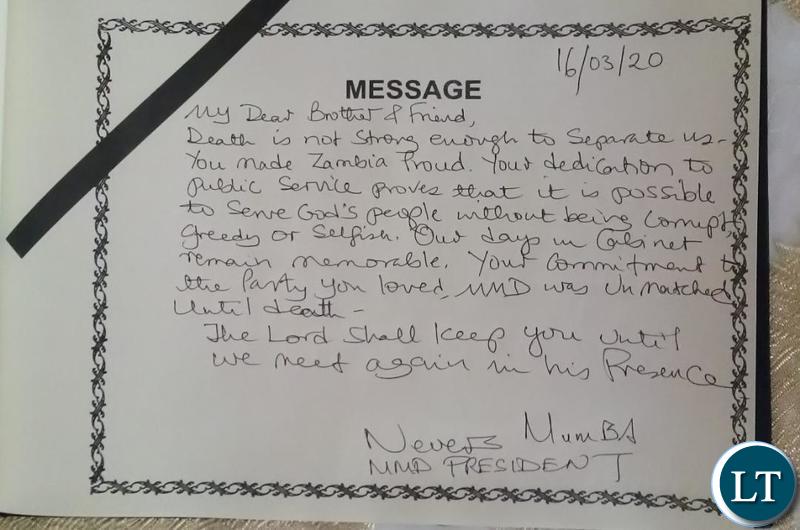 16/03/20
MESSAGE
My Dear Brother & Friend,
Death is not strong enough to separate us-
You made Zambia Proud. Your dedication to
public service proves that it is possible
to serve God's people without being corrupt,
greedy or selfish. Our days in Cabinet
remain memorable. Your commitment to
the Party you loved, MMD was unmatched
until death-
The Lord shall keep you until
we meet again in his Presence
Nevers MumBA
MMD PRESIDENT
LT